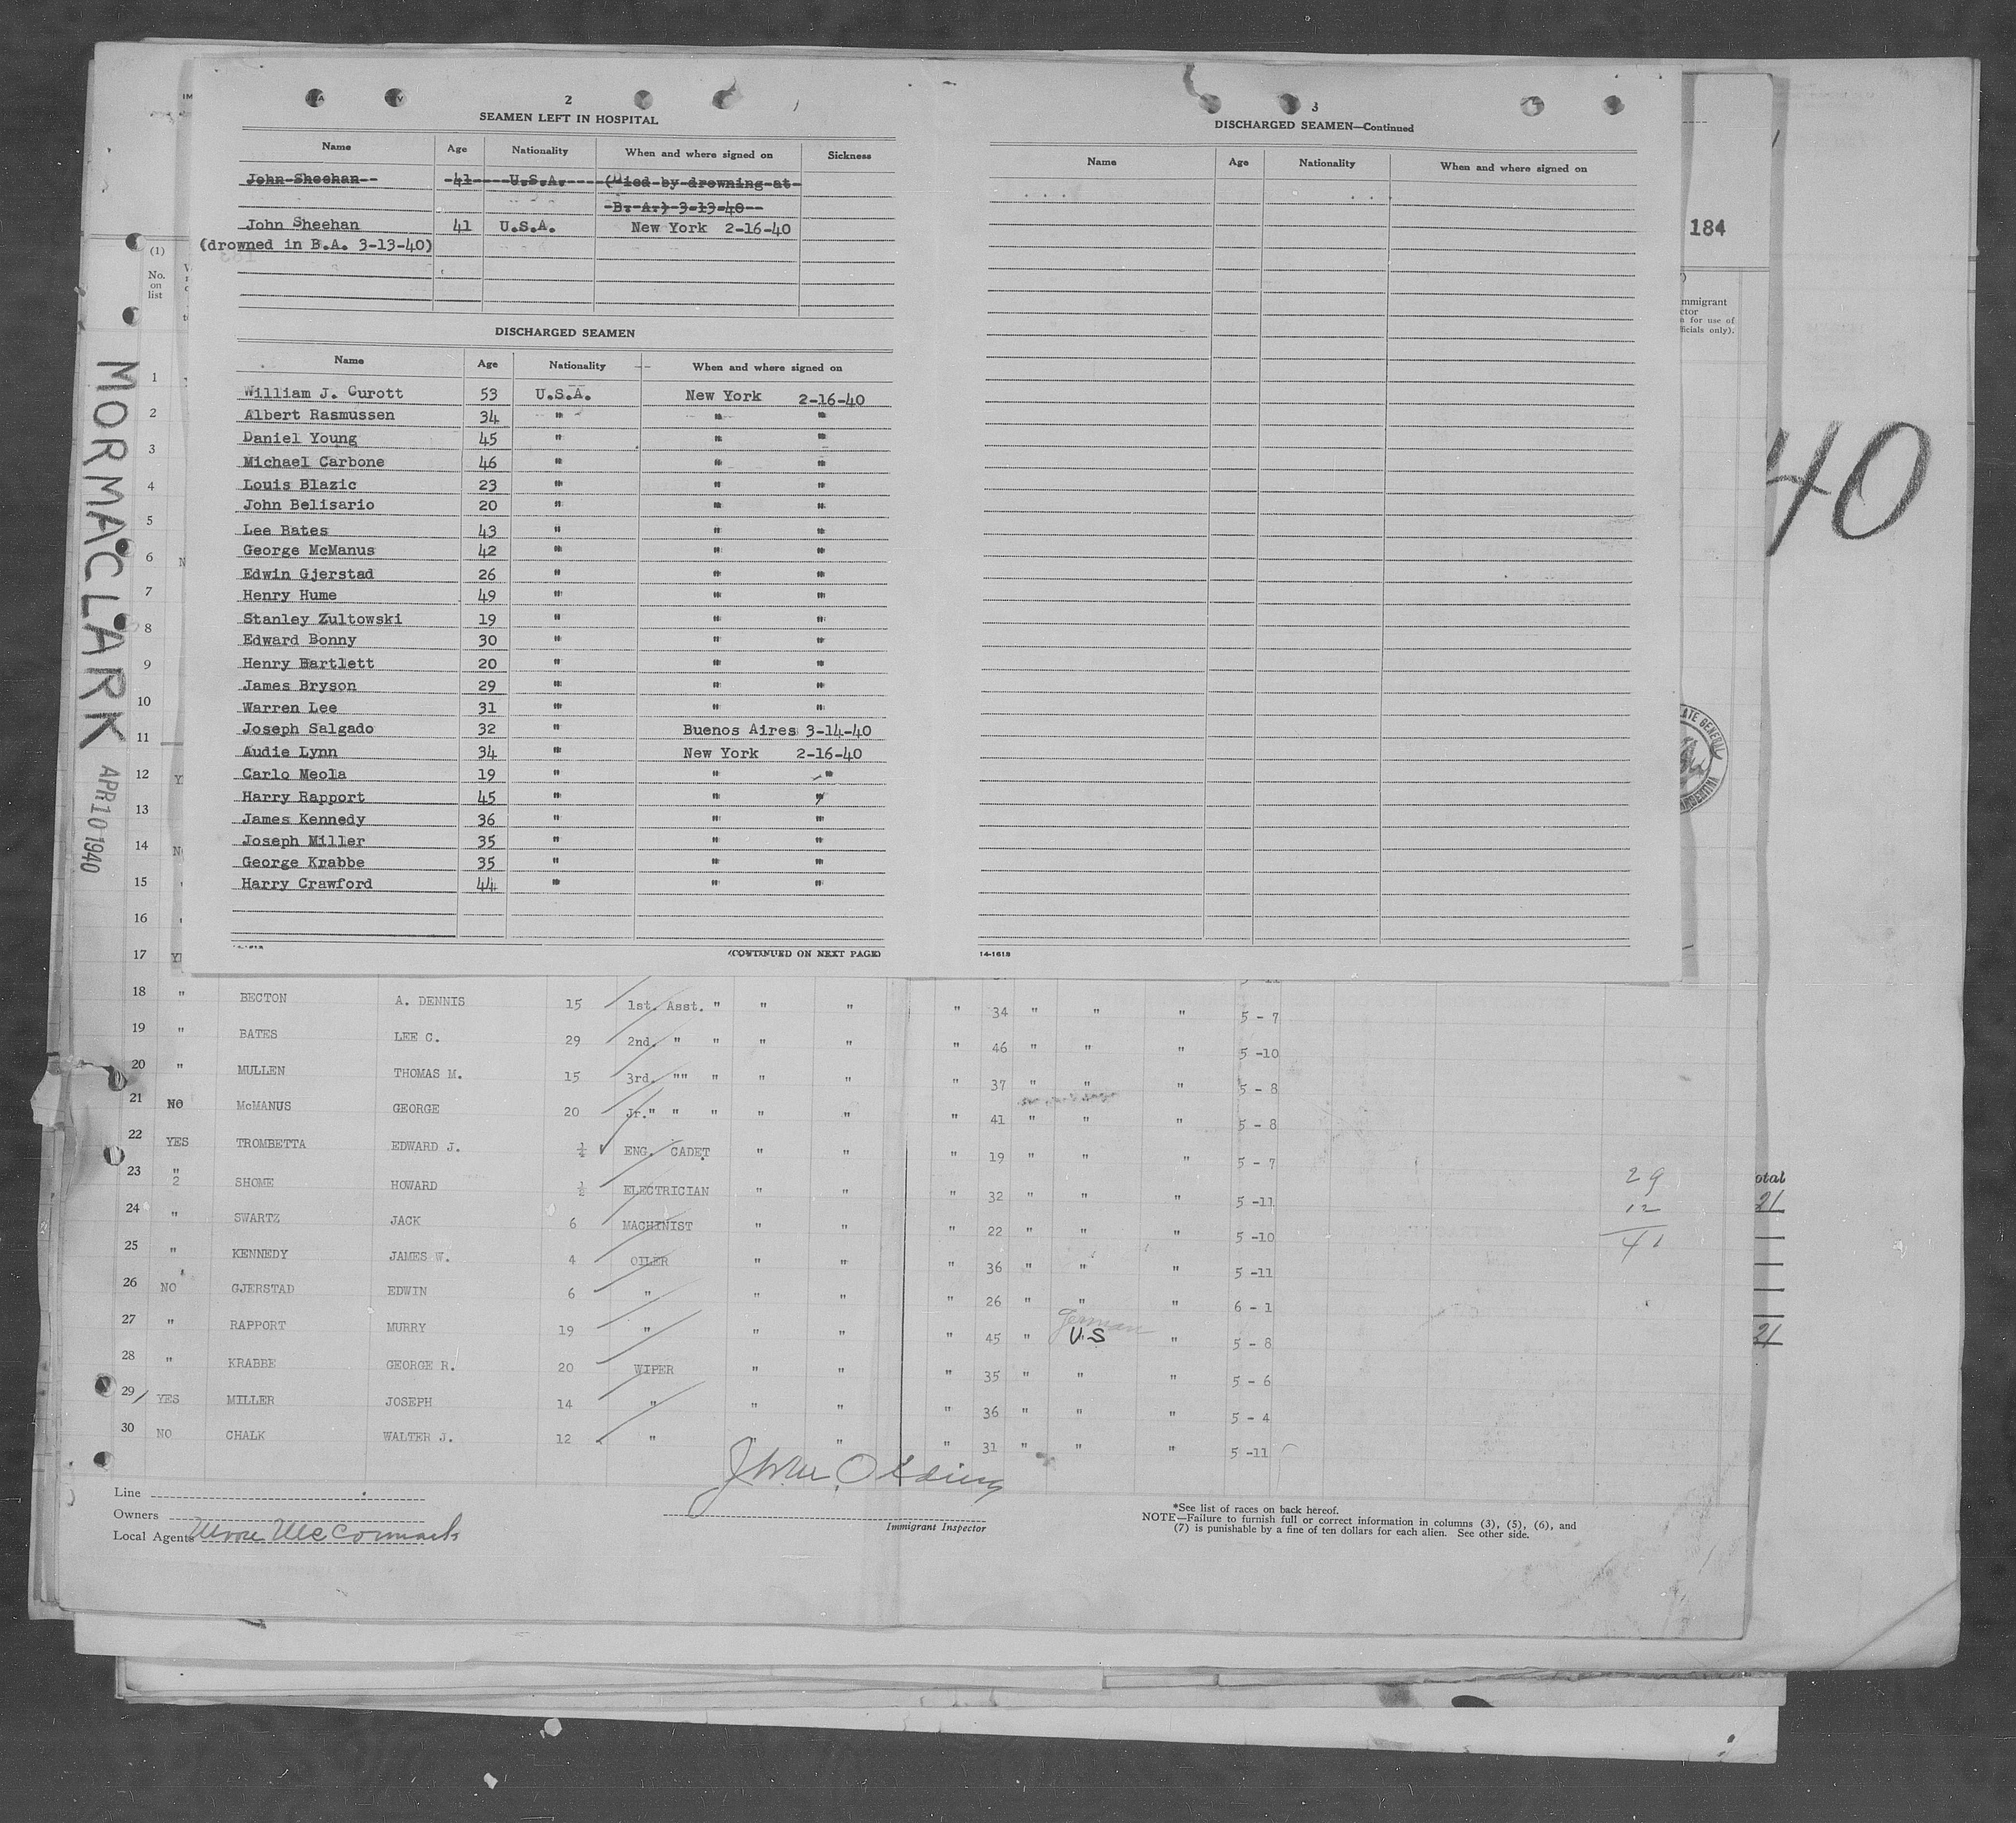 2
SEAMEN LEFT IN HOSPITAL
Name Age Nationality When and where signed on Sickness
John Sheehan-- -41----U.S.A.----(Died-by-drowning-at-
-B.-A.)-3-13-40--
John Sheehan 41 U.S.A. New York 2-16-40
(drowned in B.A. 3-13-40)
DISCHARGED SEAMEN
Name Age Nationality When and where signed on
William J. Curott 53 U.S.A. New York 2-16-40
Albert Rasmussen 34 " " "
Daniel Young 45 " " "
Michael Carbone 46 " " "
Louis Blazic 23 " " "
John Belisario 20 " " "
Lee Bates 43 " " "
George McManus 42 " " "
Edwin Gjerstad 26 " " "
Henry Hume 49 " " "
Stanley Zultowski 19 " " "
Edward Bonny 30 " " "
Henry Bartlett 20 " " "
James Bryson 29 " " "
Warren Lee 31 " " "
Joseph Salgado 32 " Buenos Aires 3-14-40
Audie Lynn 34 " New York 2-16-40
Carlo Meola 19 " " "
Harry Rapport 45 " " "
James Kennedy 36 " " "
Joseph Miller 35 " " "
George Krabbe 35 " " "
Harry Crawford 44 " " "
(CONTINUED ON NEXT PAGE)
3
DISCHARGED SEAMEN—Continued
Name Age Nationality When and where signed on
14-1618
184
mmigrant
ctor
for use of
ficials only).
40
MORMACLARK
APR 10 1940
(1)
No.
on
list
1
2
3
4
5
6
7
8
9
10
11
12
13
14
15
16
17
18 " BECTON A. DENNIS 15 1st. Asst. " " " " 34 " " " 5 - 7
19 " BATES LEE C. 29 2nd. " " " " " 46 " " " 5 -10
20 " MULLEN THOMAS M. 15 3rd. "" " " " " 37 " " " 5 - 8
21 NO McMANUS GEORGE 20 Jr." " " " " " 41 " " " 5 - 8
22 YES TROMBETTA EDWARD J. ENG. CADET " " " 19 " " " 5 - 7
23 " 2 SHOME HOWARD ½ ELECTRICIAN " " " 32 " " " 5 -11
24 " SWARTZ JACK 6 MACHINIST " " " 22 " " " 5 -10
25 " KENNEDY JAMES W. 4 OILER " " " 36 " " " 5 -11
26 NO GJERSTAD EDWIN 6 " " " " 26 " " " 6 - 1
27 " RAPPORT MURRY 19 " " " " 45 " German U.S " 5 - 8
28 " KRABBE GEORGE R. 20 WIPER " " " 35 " " " 5 - 6
29 YES MILLER JOSEPH 14 " " " " 36 " " " 5 - 4
30 NO CHALK WALTER J. 12 " " " " 31 " " " 5 -11
29
12
41
otal
21
21
Line
Owners
Local Agents Moore McCormack
Immigrant Inspector
*See list of races on back hereof.
NOTE—Failure to furnish full or correct information in columns (3), (5), (6), and
(7) is punishable by a fine of ten dollars for each alien. See other side.